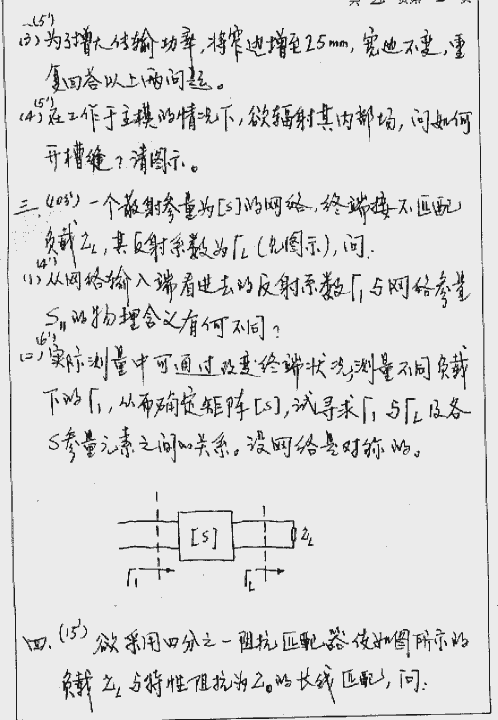 (5')
(3) 为了增大传输功率，将窄边增至25mm，宽边不变，重
复回答以上两问题。
(5')
(4) 在工作于主模的情况下，欲辐射其内部场，问如何
开槽缝？请图示。
三、(10分) 一个散射参量为[S]的网络，终端接不匹配
负载ZL，其反射系数为ΓL (见图示)，问：
(4')
(1) 从网络输入端看进去的反射系数Γ1与网络参量
S11的物理含义有何不同？
(6')
(二) 实际测量中可通过改变终端状况，测量不同负载
下的Γ1，从而确定矩阵[S]，试寻求Γ1与ΓL及各
S参量元素之间的关系。设网络是对称的。
[S]
ZL
Γ1
ΓL
四、(15') 欲采用四分之一阻抗匹配器使如图所示的
负载ZL与特性阻抗为Z0的长线匹配，问：